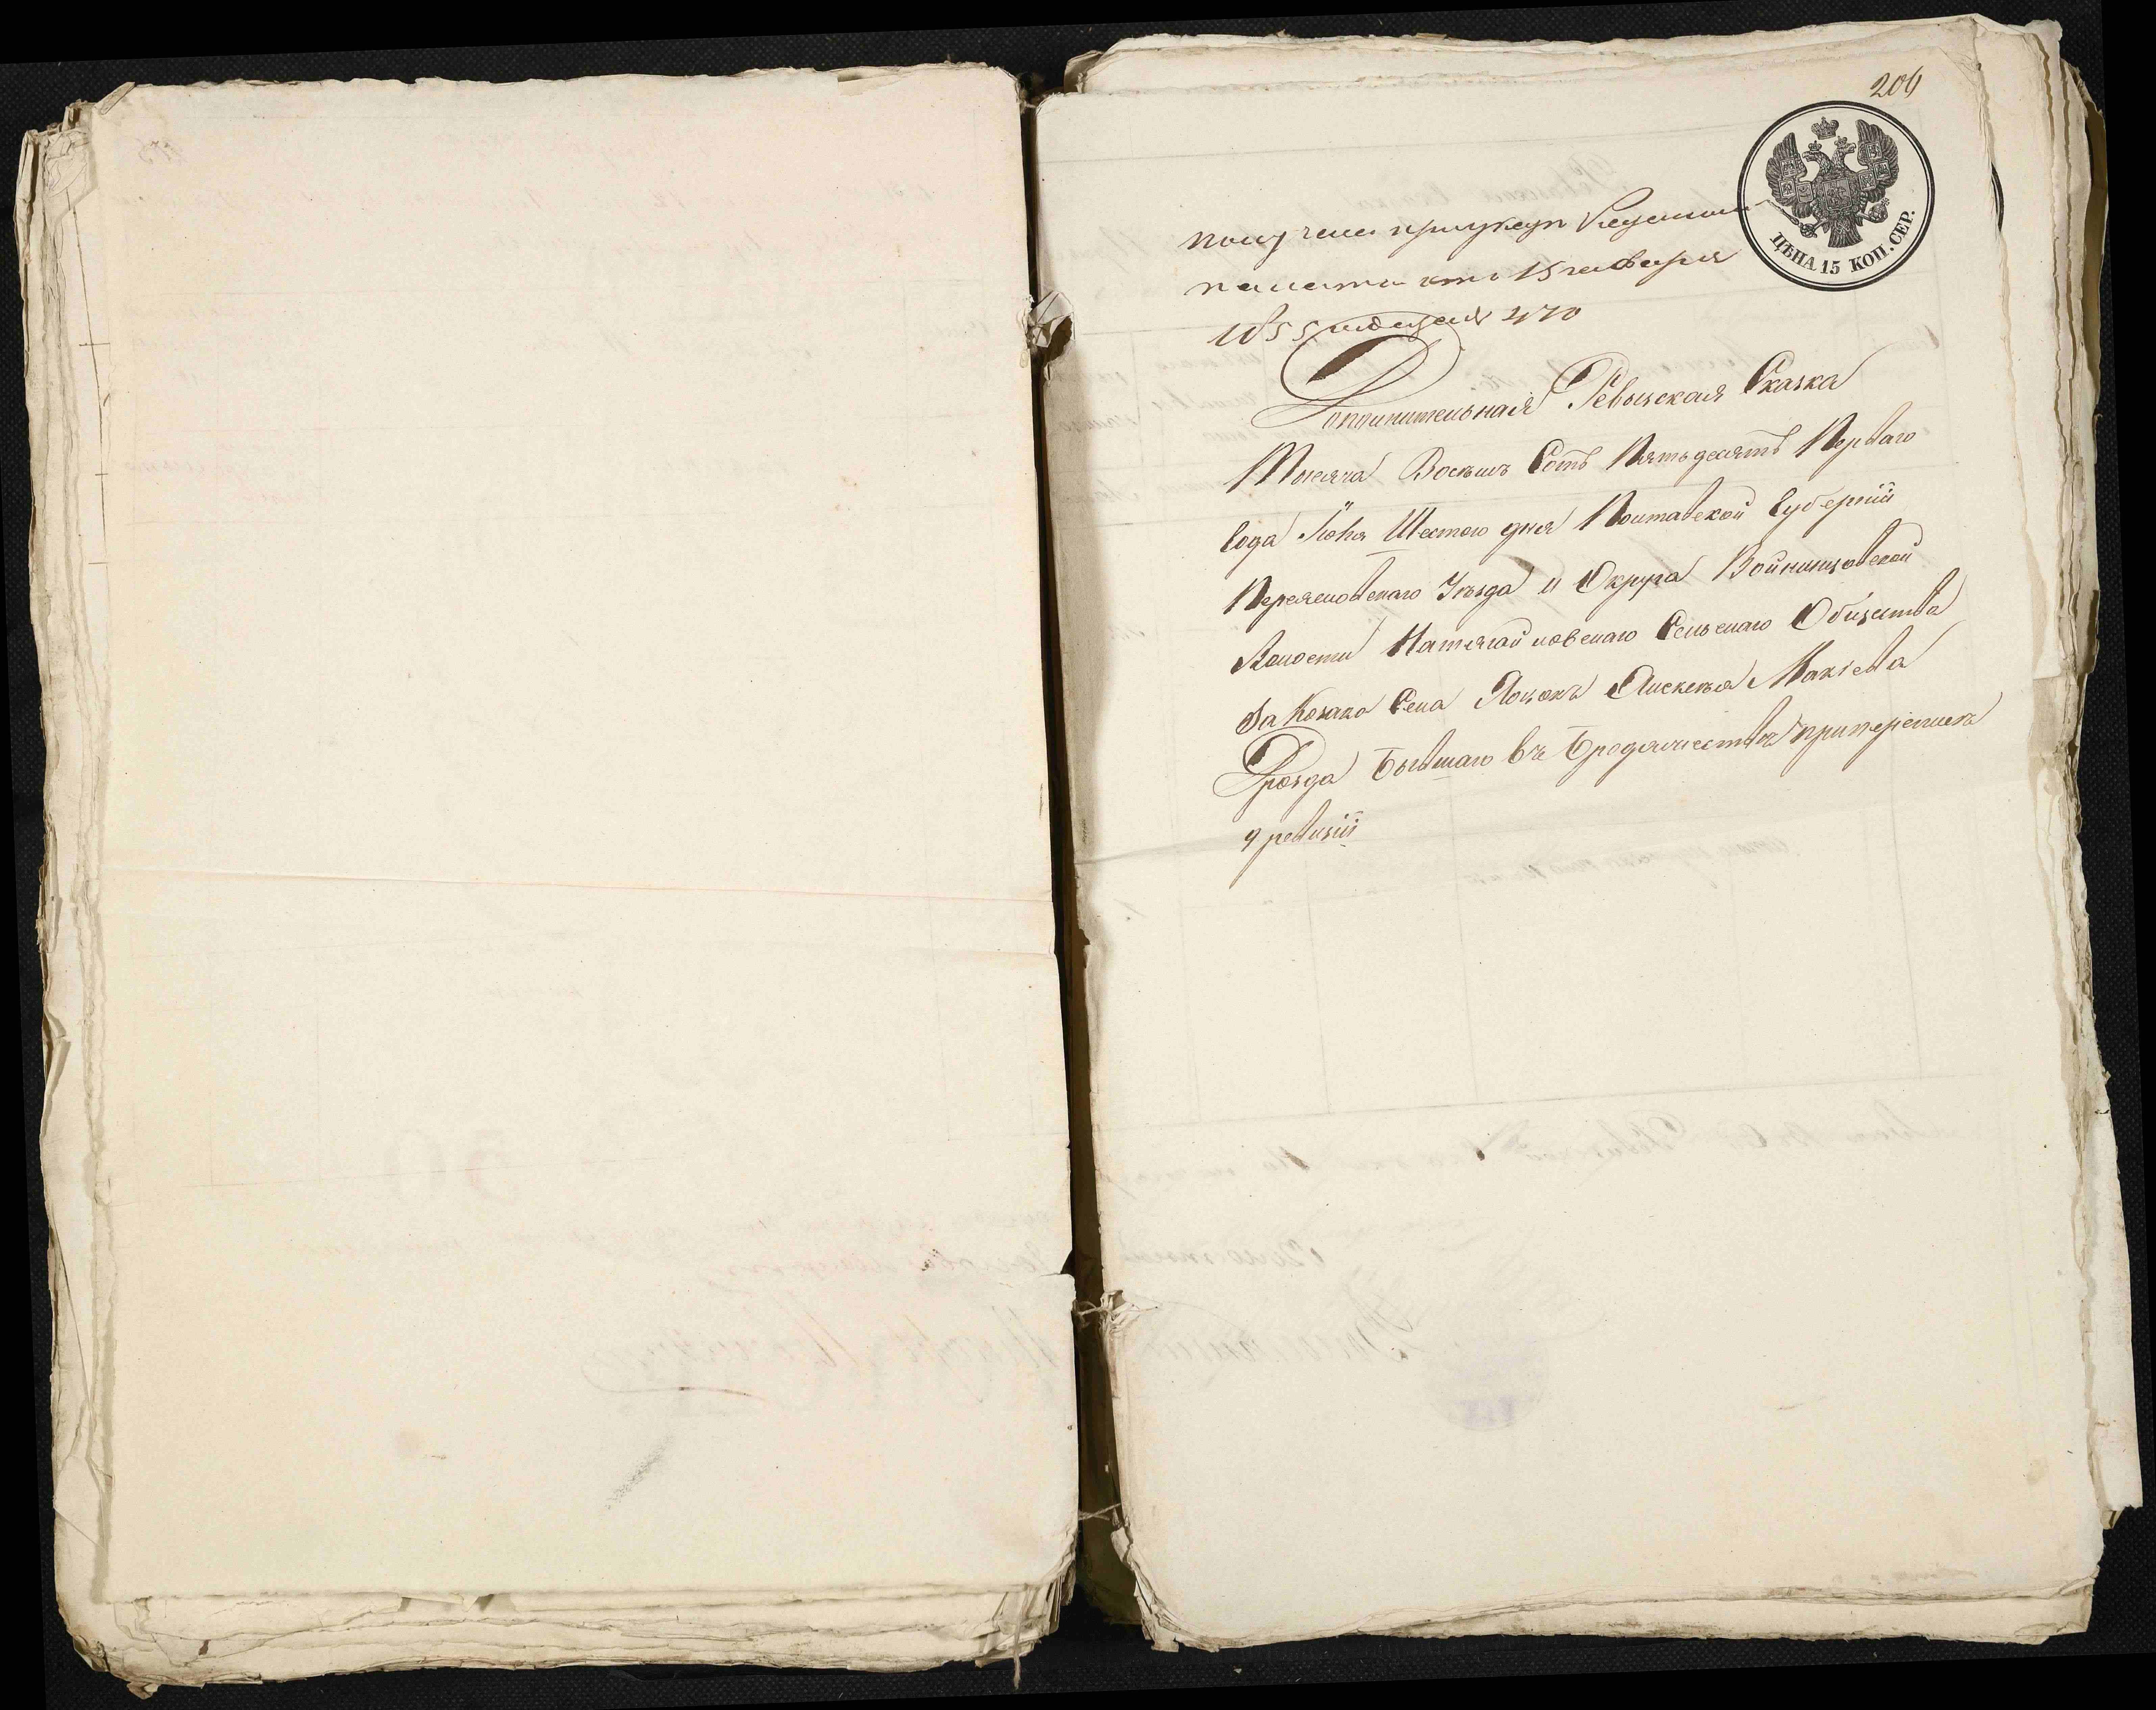 206
ЦѢНА 15 КОП. СЕР.
получена при указе Казенной
палаты отъ 15 генваря
1855 года за № 470
Дополнительная Ревызская Сказка
Тысяча Восѣмъ Сотъ Пятьдесятъ Перваго
Года Іюня Шестого дня Полтавской Губерніи
Переясловскаго Уѣзда и Округа Войнинцовской
Волости Натягайловскаго Сельскаго Общества
За Козака Села Лоцокъ Алексѣя Макѣева
Дрозда Бывшаго въ Бродяжествѣ при переписи
9 ревизіи